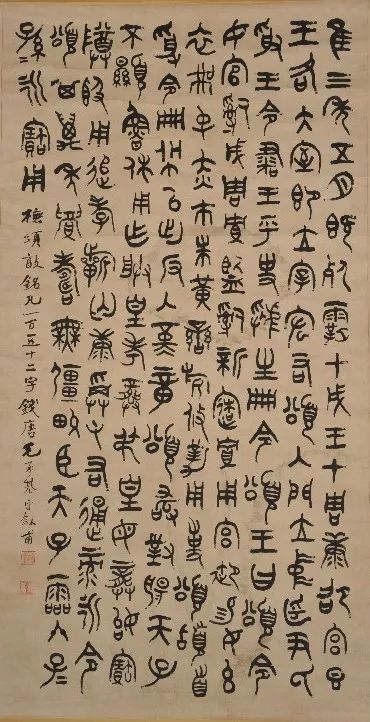 隹三年五月既死霸甲戌王才周康卲宮旦
王各大室即立宰弘右頌入門立中廷尹氏
受王令書王乎史虢生冊令頌王曰頌令
女官𤔲成周貯監𤔲新造貯用宮御易女玄
衣黹屯赤市朱黃䜌旂攸勒用事頌拜𩒨首
受令冊佩以出反入堇章頌敢對揚天子
不顯魯休用乍朕皇考龏弔皇母龏姒寶
尊𣪘用追孝𣄨匄康屯右通彔永令
頌其萬年眉壽無彊畯臣天子霝冬子=
孫=永寶用 橅頌敦銘凡一百五十二字 錢唐